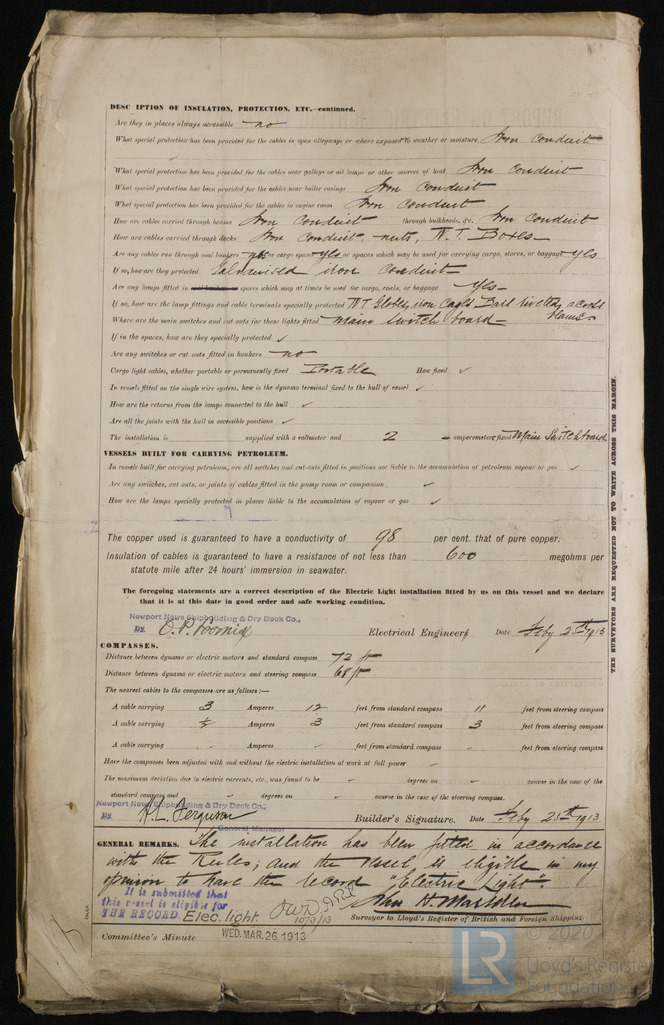 DESC IPTION OF INSULATION, PROTECTION, ETC.—continued.
Are they in places always accessible no
What special protection has been provided for the cables in open alleyways or where exposed to weather or moisture Iron Conduit
What special protection has been provided for the cables near galleys or oil lamps or other sources of heat Iron Conduit
What special protection has been provided for the cables near boiler casings Iron Conduit
What special protection has been provided for the cables in engine room Iron Conduit
How are cables carried through beams Iron Conduit through bulkheads, &c. Iron Conduit
How are cables carried through decks Iron Conduit, nuts, W.T. Boxes
Are any cables run through coal bunkers or cargo spaces yes or spaces which may be used for carrying cargo, stores, or baggage yes
If so, how are they protected Galvanised iron Conduit
Are any lamps fitted in spaces which may at times be used for cargo, coals, or baggage Yes
If so, how are the lamp fittings and cable terminals specially protected W T Globes, iron
Where are the main switches and cut outs for these lights fitted Main Switch board
If in the spaces, how are they specially protected ✓
Are any switches or cut outs fitted in bunkers no
Cargo light cables, whether portable or permanently fixed Portable How fixed ✓
In vessels fitted on the single wire system, how is the dynamo terminal fixed to the hull of vessel ✓
How are the returns from the lamps connected to the hull ✓
Are all the joints with the hull in accessible positions ✓
The installation is supplied with a voltmeter and 2 amperometers, fixed Main Switchboard
VESSELS BUILT FOR CARRYING PETROLEUM.
In vessels built for carrying petroleum, are all switches and cut-outs fitted in positions not liable to the accumulation of petroleum vapour or gas ✓
Are any switches, cut outs, or joints of cables fitted in the pump room or companion ✓
How are the lamps specially protected in places liable to the accumulation of vapour or gas ✓
The copper used is guaranteed to have a conductivity of 98 per cent. that of pure copper.
Insulation of cables is guaranteed to have a resistance of not less than 600 megohms per
statute mile after 24 hours' immersion in seawater.
The foregoing statements are a correct description of the Electric Light installation fitted by us on this vessel and we declare
that it is at this date in good order and safe working condition.
Newport News Shipbuilding & Dry Dock Co.,
By Electrical Engineers Date Feby 25th 1913
COMPASSES.
Distance between dynamo or electric motors and standard compass 72 ft
Distance between dynamo or electric motors and steering compass 68 ft
The nearest cables to the compasses are as follows:—
A cable carrying 3 Amperes 12 feet from standard compass 11 feet from steering compass
A cable carrying ½ Amperes 3 feet from standard compass 3 feet from steering compass
A cable carrying Amperes feet from standard compass feet from steering compass
Have the compasses been adjusted with and without the electric installation at work at full power
The maximum deviation due to electric currents, etc., was found to be degrees on course in the case of the
standard compass and degrees on course in the case of the steering compass.
Newport News Shipbuilding & Dry Dock Co.,
By H.L. Ferguson Builder's Signature. Date Feby 25th 1913
General Manager
GENERAL REMARKS. The installation has been fitted in accordance
with the Rules, and the vessel is eligible in my
opinion to have the record "Electric Light".
It is submitted that
this vessel is eligible for
THE RECORD. Elec. light. 10/3/13
John H. Marsden
Surveyor to Lloyd's Register of British and Foreign Shipping
Committee's Minute WED. MAR. 26. 1913
THE SURVEYORS ARE REQUESTED NOT TO WRITE ACROSS THIS MARGIN.
LR © 2020
Lloyd's Register
Foundation